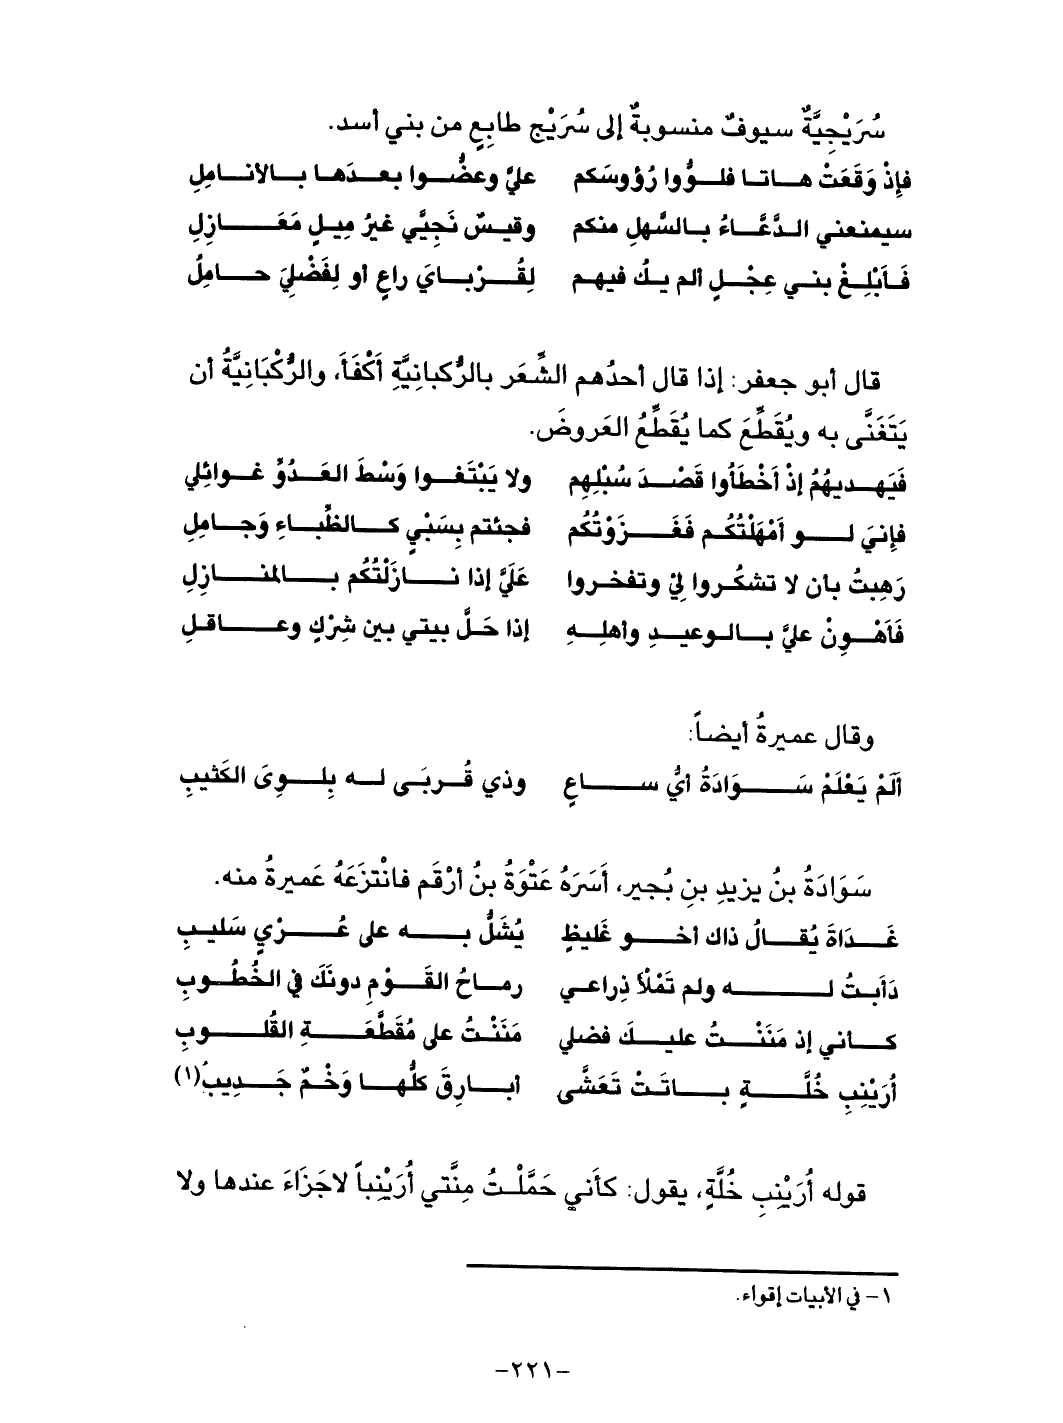 سُرَيْجِيَّةٌ سيوفٌ منسوبةٌ إلى سُرَيْج طابِعٍ من بني أسد.
فإِذْ وَقَعَتْ هاتا فلوُّوا رُؤوسَكم عليَّ وعضُّوا بعدَها بالأناملِ
سيمنعني الدَّعَّاءُ بالسَّهلِ منكم وقيسٌ نَجِيِّي غيرُ مِيلٍ مَعَازِلِ
فَأَبْلِغْ بني عِجْلٍ ألم يكُ فيهم لِقُرْبايَ راعٍ أو لِفَضْلِيَ حاملُ
قال أبو جعفر: إذا قال أحدُهم الشِّعَر بالرُّكبانِيَّةِ أَكْفَأَ، والرُّكْبَانِيَّةُ أن
يَتَغَنَّى به ويُقَطِّعَ كما يُقَطِّعُ العَروضَ.
فَيَهديهُمُ إذْ أَخْطَأُوا قَصْدَ سُبْلِهِم ولا يَبْتَغوا وَسْطَ العَدُوِّ غوائلي
فإِنيَ لو أَمْهَلْتُكُم فَغَزَوْتُكُم فجئتم بِسَبْيٍ كالظِّباءِ وَجامِلِ
رَهِبتُ بأن لا تشكُروا لِيْ وتفخروا عَلَيَّ إذا نازَلْتُكُم بالمنازِلِ
فَأَهْوِنْ عليَّ بالوعيدِ وأهلِهِ إذا حَلَّ بيتي بين شِرْكٍ وعاقلِ
وقال عميرةُ أيضاً:
أَلَمْ يَعْلَمْ سَوَادَةُ أيُّ ساعٍ وذي قُربَى له بِلِوِىَ الكَثيبِ
سَوَادَةُ بنُ يزيدِ بنِ بُجيرِ، أَسَرَهُ عَتْوَةُ بنُ أرْقَم فانْتزَعَهُ عَميرةُ منه.
غَدَاةَ يُقالُ ذاك أخو غَليظٍ يُشَلُّ به على عُرْيٍ سَليبِ
دَأَبتُ له ولم تَمْلأ ذِراعي رماحُ القَوْمِ دونَكَ في الخُطُوبِ
كأني إذ مَنَنْتُ عليكَ فضلي مَنَنْتُ على مُقَطَّعَةِ القُلُوبِ
أُرَيْنِبِ خُلَّةٍ باتَتْ تَعَشَّى أبارِقَ كلُّها وَخْمٌ جَدِيبُ(١)
قوله أُرَيْنِبِ خُلَّةٍ، يقول: كأَني حَمَّلْتُ مِنَّتي أُرَيْنِباً لاجَزَاءَ عندها ولا
١- في الأبيات إقواء.
-٢٢١-